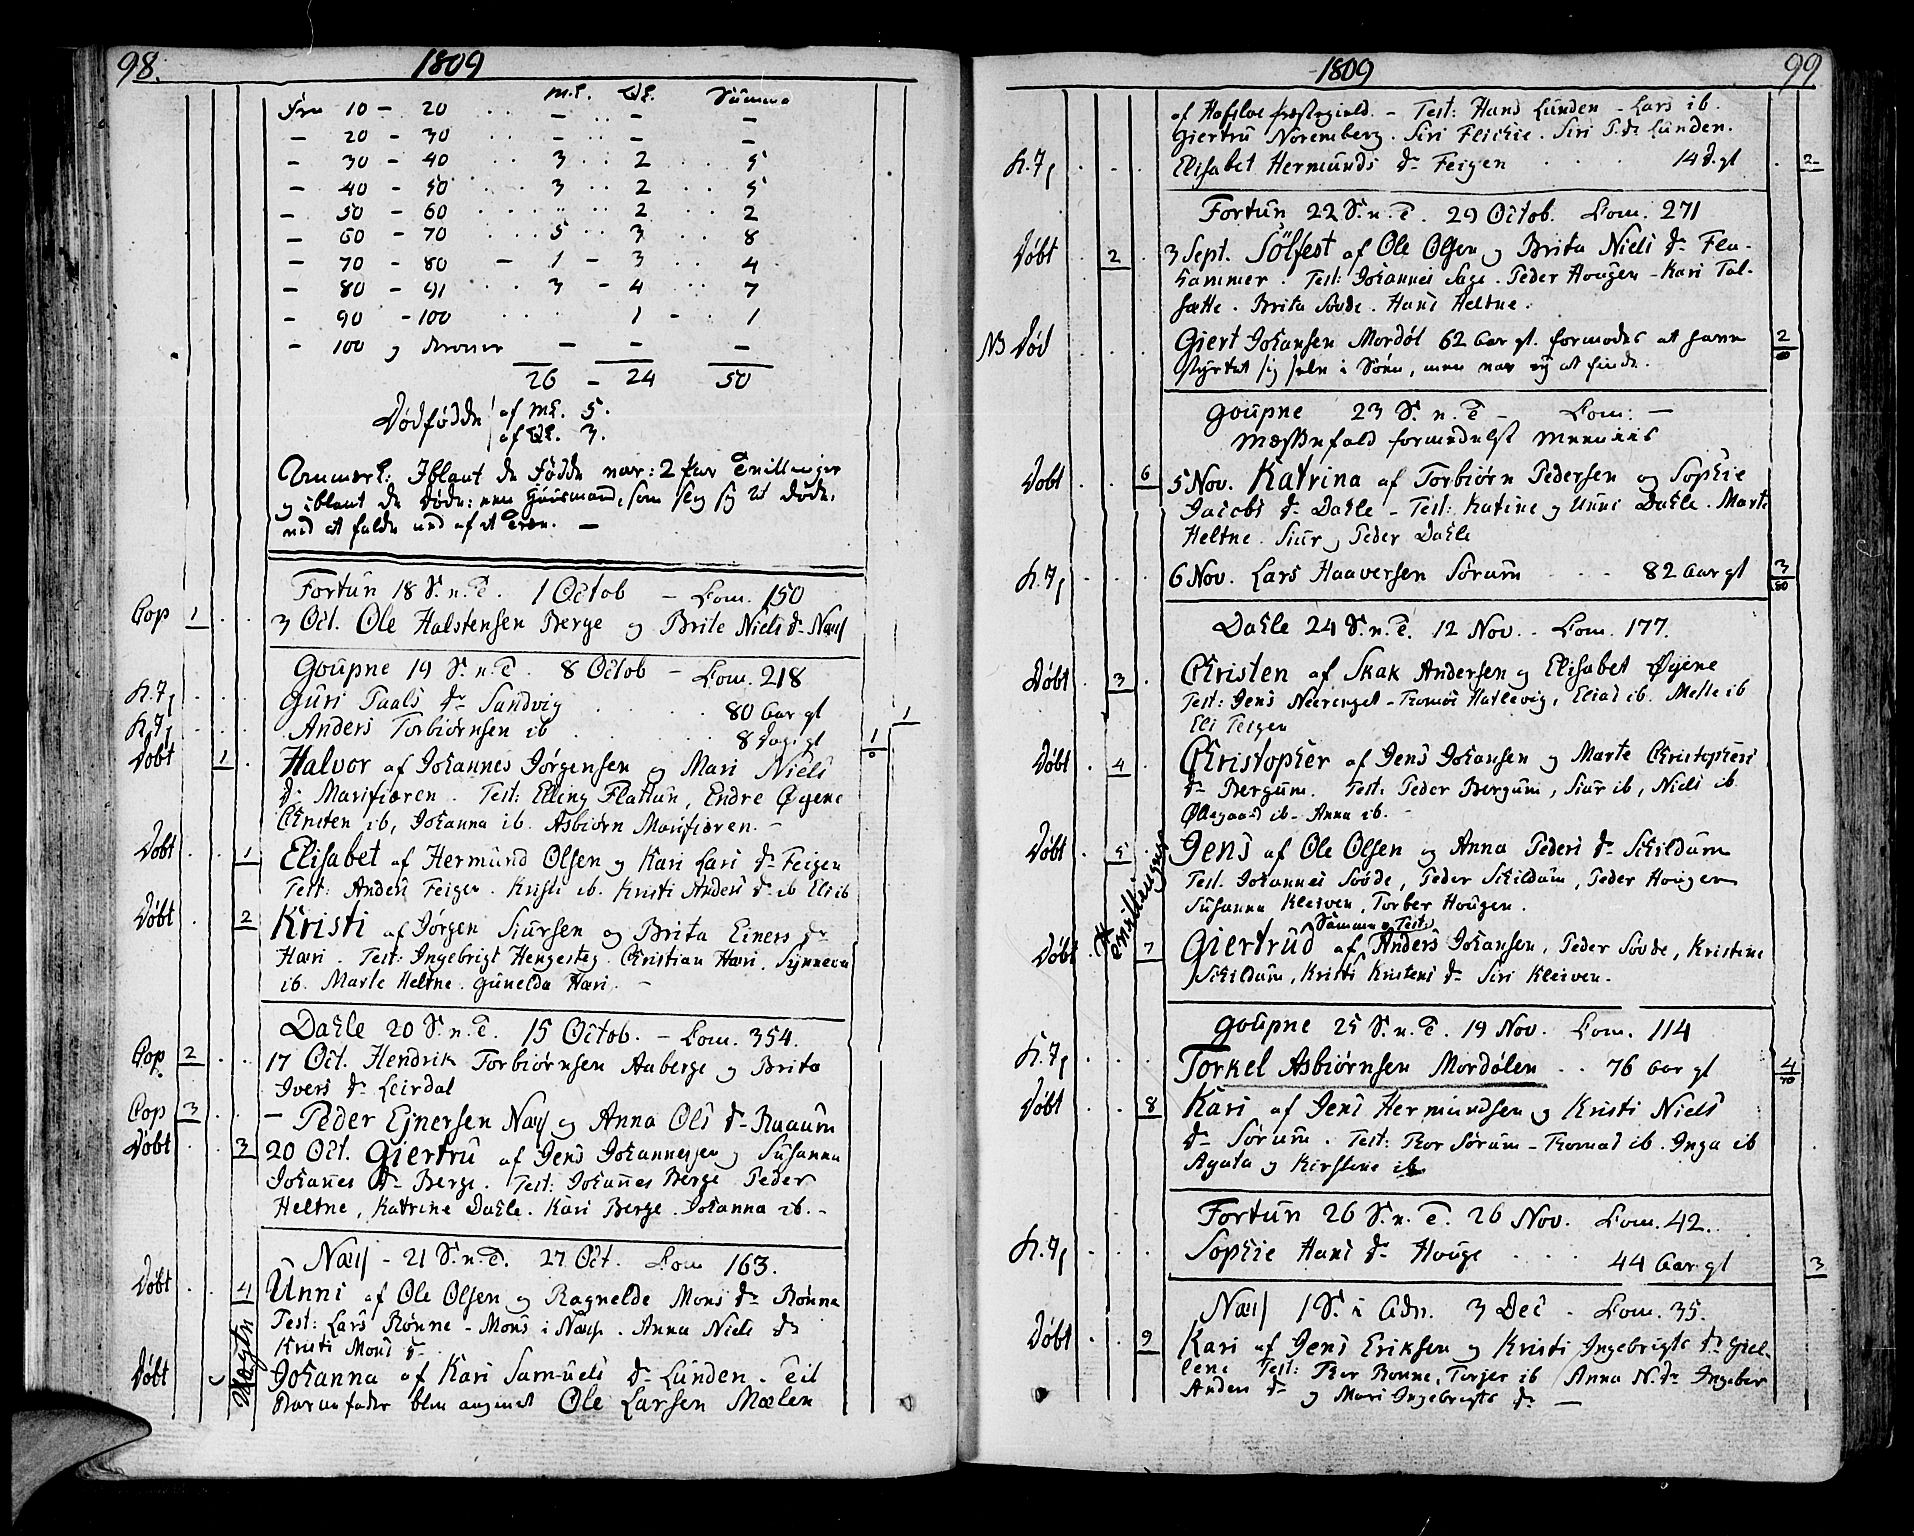 98. 1809
M.k. Qk. Summa
Fra 10 - 20 . . - - -
- 20 - 30 - - -
- 30 - 40 . . 3 . . 2 . . 5
- 40 - 50 . . . 3 . . 2 . . 5
- 50 - 60 . . . . . . . 2 . . 2
- 60 - 70 . . . 5 . . 3 . . 8
- 70 - 80 - 1 - 3 . . 4
- 80 - 91 . . 3 - 4 . . 7
- 90 - 100 . . . 1 - . 1
- 100 og - - -
26 - 24 50
Dødfødde af Mk. 5.
af Qk. 3.
Anmærk: Iblant de Fødde var: 2 Par Tvillinger
og iblant de Døde: een Huusmand, som slog sig til døde,
ved at falde ned af et Træe. -
Fortun 18 S. n. T. 1 Octob - Com. 150
Cop 1 . . 3 Oct. Ole Halstensen Berge og Brite Niels dr Næss
Goupne 19 S. n. T. 8 Octob - Com. 218
h. 7, . . . Guri Paals dr Sandvig . . . 80 Aar gl 1
h. 7, . . . Anders Torbiørnsen ib . . . 8 Dage gl 1
Døbt 1 . Halvor af Johannes Jørgensen og Mari Niels
dr Marifiæren. Test: Elling Flattun, Endre Øyene
Christen ib, Johanna ib. Asbiørn Marifiæren. -
Døbt . . 1 Elisabet af Hermund Olsen og Kari Lars dr Feigen
Test: Anders Feigen. Kristi ib. Kristi Anders dr ib Eli ib
Døbt . 2 Kristi af Jørgen Siursen og Brita Einers dr
Hæri. Test: Ingebrigt Hengesteg. Christian Hæri. Synneva
ib. Marte Heltne. Gunelda Hæri. -
Dahle 20 S. n. T. 15 Octob. - Com. 354.
Cop 2 . . 17 Oct. Hendrik Torbiørnsen Aaberge og Brita
Ivers dr Leirdal
Cop 3 . . - Peder Ejnersen Næss og Anna Ols dr Ruaum
Døbt . . 3 20 Oct. Giertru af Jens Johannessen og Susanna
Johannes dr Berge. Test: Johannes Berge Peder
Heltne, Katrine Dahle. Kari Berge. Johanna ib. -
Næss - 21 S. n. T. 27 Oct. Com 163.
Døbt . . 4 Unni af Ole Olsen og Ragnelde Mons dr Rønne
Test: Lars Rønne - Mons i Næss. Anna Niels dr
Kristi Mons dr
Døbt Johanna af Kari Samuels dr Lunden. Til
Barnefader blev angivet Ole Larsen Mælen
1809 99
af Hafsloe Præstegield. - Test: Hans Lunden - Lars ib.
Giertru Noremberg. Siri Flichie. Siri P. dr Lunden.
h. 7, . . . Elisabet Hermunds dr Feigen . . . 14 d. gl . 2
Fortun 22 S. n. T. 29 Octob. Com. 271
Døbt . 2 . 3 Sept. Sölfest af Ole Olsen og Brita Niels dr Fla-
hammer. Test: Johannes Sage. Peder Hougen - Kari Tal-
sætte. Brita Sovde. Hans Heltne.
NB Død . . . Giert Johansen Mordøl 62 Aar gl. formodes at have
styrtet sig selv i Søen, men var ey at finde. 2
Goupne 23 S. n. T - Com: -
Messefald formedelst
Døbt . . 6 5 Nov. Katrina af Torbiørn Pedersen og Sophie
Jacobs dr Dahle - Test: Katrine og Unni Dahle. Marte
Heltne. Siur og Peder Dahle
h. 7, . . . 6 Nov. Lars Haaversen Sørum . . . 82 Aar gl 3
80
Dahle 24 S. n. T. 12 Nov. - Com. 177.
Døbt . 3 . Christen af Skak Andersen og Elisabet Øyene
Test: Jens Neerenget - Tomas Hatlevig, Elias ib. Mette ib
Eli Feigen
Døbt . 4 . Christopher af Jens Johansen og Marte Christophers
dr Bergum. Test: Peder Bergum, Siur ib, Niels ib
Øllegaard ib - Anna ib. -
Døbt . 5 Jens af Ole Olsen og Anna Peders dr Schildum
Test. Johannes Sovde, Peder Schildum, Peder Hougen
Susanna Kleiven, Torber Hougen.
Tvillinger
Samme Test:
Døbt . 7 Giertrud af Anders Johansen, Peder Sovde, Kristine
Schildum, Kristi Kristens dr Siri Kleiven.
Goupne 25 S. n. T. 19 Nov. Com. 114
h. 7, . . . Torkel Asbiørnsen Mordølen . . 76 Aar gl 4
70
Døbt . . 8 Kari af Jens Hermundsen og Kristi Niels
dr Sørum. Test: Thor Sørum - Thomas ib. Inga ib
Agata og Kirstene ib
Fortun 26 S. n. T. 26 Nov. Com. 42.
h. 7, . . . Sophie Hans dr Houge . . . 44 Aar gl 3
Næss 1 S. i Adv. 3 Dec - Com. 35.
Døbt . . 9 Kari af Jens Eriksen og Kristi Ingebrigts dr Giel-
lene Test: Thor Rønne, Torjer ib Anna N. dr Ingeber
Anders dr og Mari Ingebrigts dr -